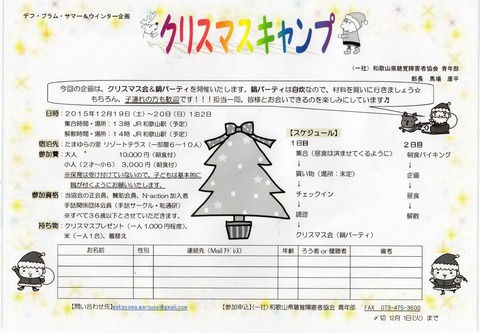 デフ・プラム・サマー＆ウインター企画
クリスマスキャンプ
（一社）和歌山県聴覚障害者協会 青年部
部長 馬場 康平
今回の企画は、クリスマス会＆鍋パーティを開催いたします。鍋パーティは自炊なので、材料を買いに行きましょう☆
もちろん、子連れの方も歓迎です！！！担当一同、皆様とお会いできるのを楽しみにしています♪
日時：2015年12月19日（土）～20日（日）1泊2日
集合時間・場所：13時 JR和歌山駅（予定）
解散時間・場所：14時 JR和歌山駅（予定）
宿泊先：たまゆらの里 リゾートテラス（一部屋6～10人）
参加費：大人 10,000円（朝食付）
小人（2才～小6） 3,000円（朝食付）
※保険は受け付けていないので、子どもは基本的に
親が付くようにお願いいたします。
参加資格：当協会の正会員、賛助会員、N-action加入者
手話関係団体会員（手話サークル・和通研）
※すべて36歳以下とさせていただきます。
持ち物：クリスマスプレゼント（一人1,000円程度）、
米（一人1合）、着替え
【スケジュール】
1日目
集合（昼食は済ませてくるように）
↓
買い物（場所：未定）
↓
チェックイン
↓
調理
↓
クリスマス会（鍋パーティ）
2日目
朝食バイキング
↓
企画
↓
昼食
↓
解散
お名前 性別 連絡先（Mailｱﾄﾞﾚｽ） 年齢 ろう者 or 健聴者 備考
【問い合わせ先】wakayama.marouse@gmail.com 【参加申込】（一社）和歌山県聴覚障害者協会 青年部 FAX 073-475-3600
〆切 12月 1日（火）まで